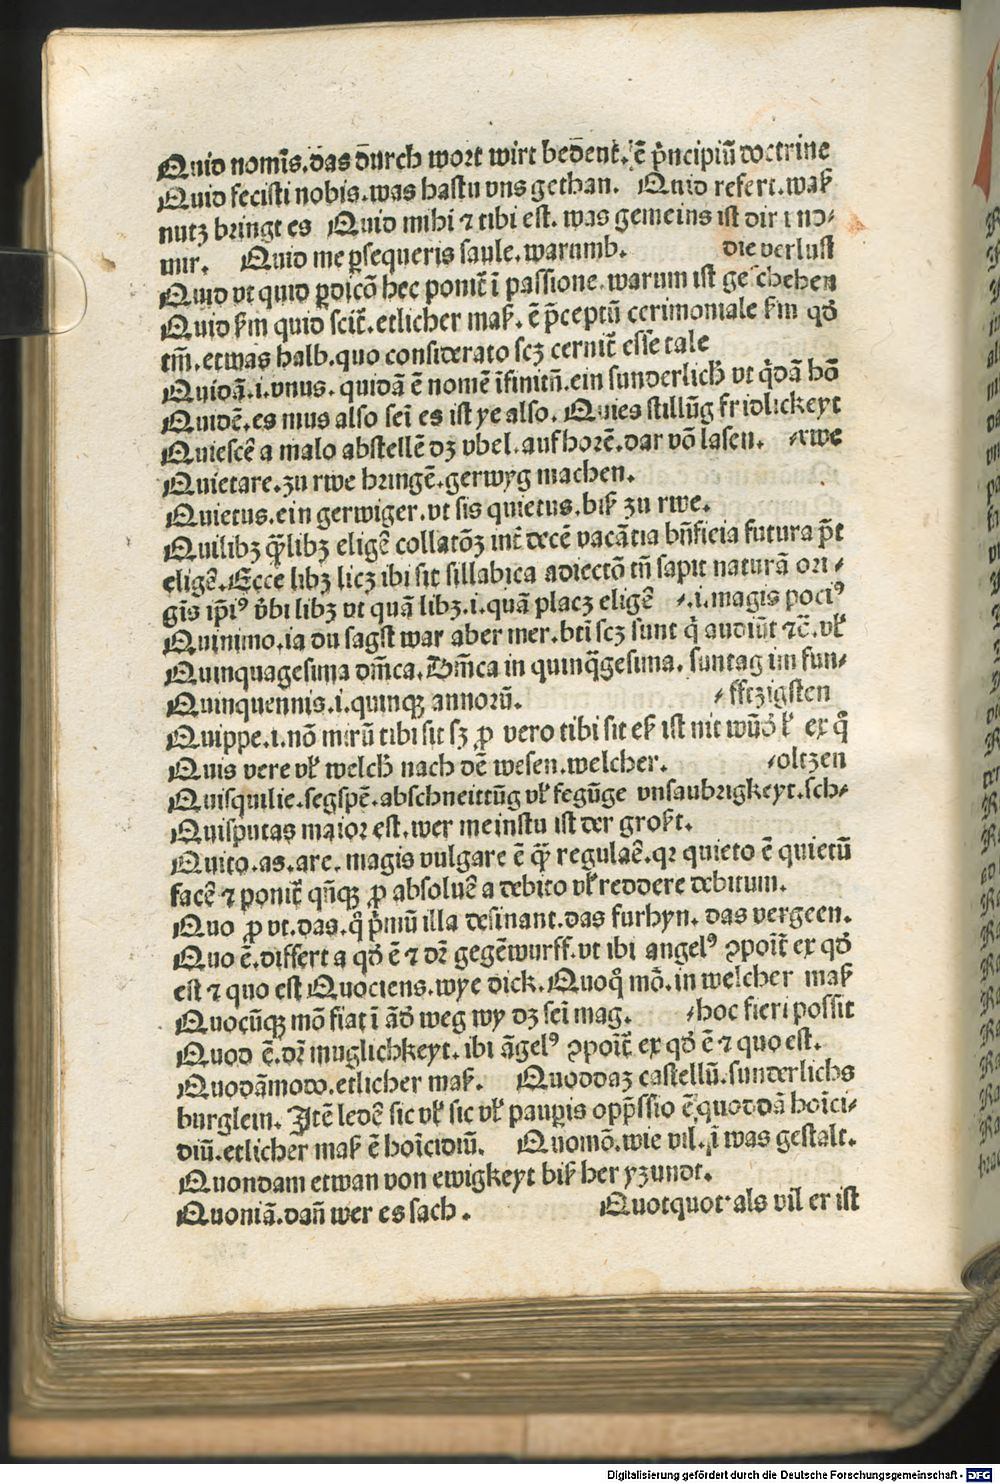 Quid nomīs. das dūrch wort wirt bedeūt. ē pͥncipiū doctrine
Quid fecisti nobis. was hastu vns gethan. Quid refert. waß
nutz bringt es Quid mihi ⁊ tibi est. was gemeins ist dir ı nd⸗
mir. Quid me ꝑsequeris saule. warumb. die verlust
Quid vt quid ꝑdicō hec ponit̄ ī passione. warum ist geschehen
Quid ẜm quid scit̄. etlicher maß. ē p̄ceptū cerimoniale ẜm qđ
tm̄. etwas halb. quo considerato scꝫ cernit̄ esse tale
Quidā. i. vnus. quidā ē nomē īfinitū. ein sunderlich̄ vt qͥdā hō
Quidē. es mus also sei es ist ye also. Quies stillūg fridlickeyt
Quiescē a malo abstellē dꝫ vbel. aufhorē. dar vō lasen. ⸗rwe
Quietare. zu rwe bringē. gerwyg machen.
Quietus. ein gerwiger. vt sis quietus. biß zu rwe.
Quilibꝫ qͣ̄libꝫ eligē collatōꝫ int̄ decē vacātia bn̄ficia futura p̄t
eligē. Ecce libꝫ licꝫ ibi sit sillabica adiectō tn̄ sapit naturā ori⸗
gīs ip̄iꝰ vͥbi libꝫ vt quā libꝫ. i. quā placꝫ eligē ⸗. i. magis pociꝰ
Quinimo. ia du sagst war aber mer. bt̄i scꝫ sunt qͥ audiūt ⁊c̄. vł
Quinquagesima dm̄ca. Dm̄ca in quinqͣgesima. suntag im fun⸗
Quinquennis. i. quinqꝫ annorū. ⸗fftzigsten
Quippe. i. nō mirū tibi sit sꝫ ꝓ vero tibi sit eß ist nit wūđ ł ex qͦ
Quis vere vł welch̄ nach dē wesen. welcher. ⸗oltzen
Quisquilie. segspē. abschneittūg vł fegūge vnsaubrigkeyt. sch⸗
Quisputas maior est. wer meinstu ist der großt.
Quito. as. are. magis vulgare ē qͣ̄ regulaē. qꝛ quieto ē quietū
facē ⁊ ponit̄ qn̄qꝫ ꝓ absoluē a debito vł reddere debitum.
Quo ꝓ vt. das. qͦ pͥmū illa desinant. das furhyn. das vergeen.
Quo ē. differt a qđ ē ⁊ dꝛ̄ gegēwurff. vt ibi angelꝰ ↄpoit̄ ex qđ
est ⁊ quo est Quociens. wye dick. Quoqͦ mō. in welcher maß
Quocūqꝫ mō fiat ī āđ weg wy dꝫ sei mag. ⸗hoc fieri possit
Quod ē. dꝛ̄ muglichkeyt. ibi āgelꝰ ↄpoit̄ ex qđ ē ⁊ quo est.
Quodāmodo. etlicher maß. Quoddaꝫ castellū. sunderlichs
burglein. Itē ledē sic vł sic vł pauꝑis opp̄ssio ē quoddā hoīci⸗
diū. etlicher maß ē hoīcidiū. Quomō. wie vil. ī was gestalt.
Quondam etwan von ewigkeyt biß her yzundt.
Quoniā. dan̄ wer es sach. Quotquot als vil er ist
Digitalisierung gefördert durch die Deutsche Forschungsgemeinschaft - DFG